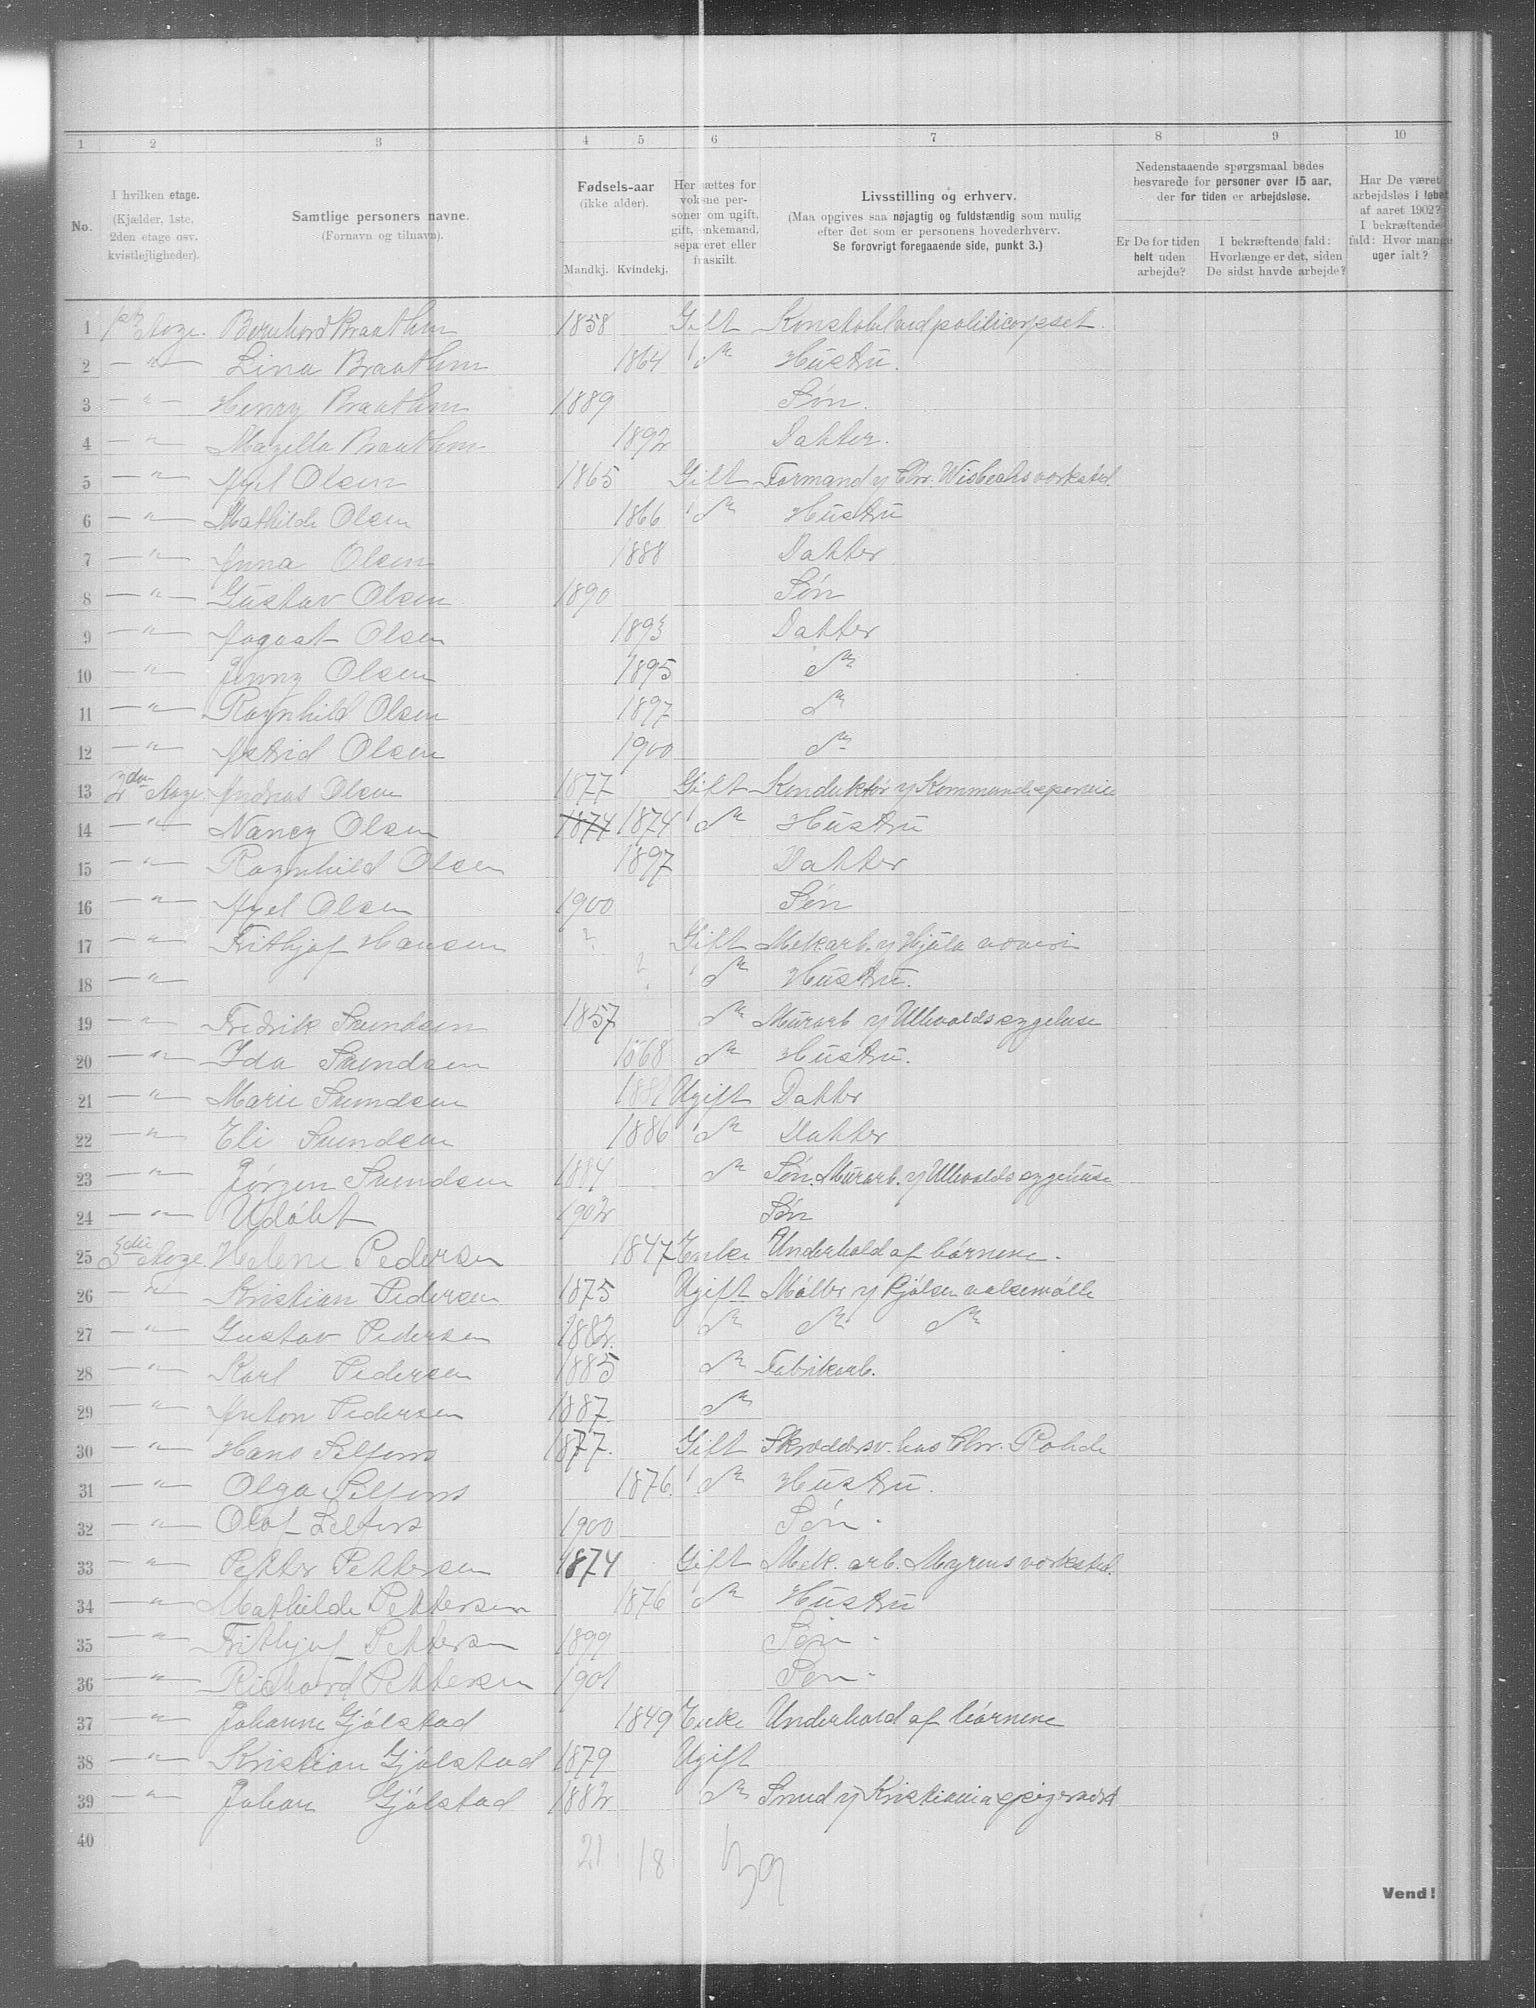 1 2 3 4 5 6 7 8 9 10
No.
I hvilken etage.
(Kjælder, 1ste,
2den etage osv.
kvistlejligheder).
Samtlige personers navne.
(Fornavn og tilnavn).
Fødsels-aar
(ikke alder).
Mandkj. Kvindekj.
Her sættes for
voksne per-
soner om ugift,
gift, enkemand,
separeret eller
fraskilt.
Livsstilling og erhverv.
(Maa opgives saa nøjagtig og fuldstændig som mulig
efter det som er personens hovederhverv.
Se forøvrigt foregaaende side, punkt 3.)
Nedenstaaende spørgsmaal bedes
besvarede for personer over 15 aar,
der for tiden er arbejdsløse.
Er De for tiden
helt uden
arbejde?
I bekræftende fald:
Hvorlænge er det, siden
De sidst havde arbejde?
Har De været
arbejdsløs i løbet
af aaret 1902?
I bekræftende
fald: Hvor mange
uger ialt?
1 1ste Etage. Bernhard Braathen 1858 Gift Konstabel ved politicorpset.
2 —"— Lina Braathen 1864 do Hustru.
3 —"— Henry Braathen 1889 Søn.
4 —"— Braathen 1892 Datter.
5 —"— Axel Olsen 1865 Gift Formand v Chr. værksted.
6 —"— Mathilde Olsen 1866 do Hustru
7 —"— Anna Olsen 1888 Datter
8 —"— Gustav Olsen 1890 Søn
9 —"— Olsen 1893 Datter
10 —"— Jenny Olsen 1895 do
11 —"— Ragnhild Olsen 1897 do
12 —"— Astrid Olsen 1900 do
13 2den Etage Andreas Olsen 1877 Gift Konduktør v
14 —"— Nancy Olsen 1874 1874 do Hustru
15 —"— Ragnhild Olsen 1897 Datter
16 —"— Axel Olsen 1900 Søn
17 —"— Frithjof Hansen ? Gift Mek arb. v Hjula væveri
18 —"— ? do Hustru.
19 —"— Fredrik Svendsen 1857 do Murarb v Ullevolds sygehuse
20 —"— Ida Svendsen 1868 do Hustru.
21 —"— Marie Svendsen Ugift Datter
22 —"— Eli Svendsen 1886 do Datter
23 —"— Jørgen Svendsen 1884 do Søn. Murarb. v Ullevolds sygehuse
24 —"— Udøbt 1902 Søn
25 3die Etage Helene Pedersen 1847 Enke Underhold af børnene.
26 —"— Kristian Pedersen 1875 Ugift Møller v valsemølle
27 —"— Gustav Pedersen 1882. do do do
28 —"— Karl Pedersen 1885 do Fabrikarb.
29 —"— Anton Pedersen 1887. do
30 —"— Hans 1877. Gift Skræddersv. hos Chr. Rohde
31 —"— Olga 1876. do Hustru.
32 —"— Olaf 1900 Søn.
33 —"— Petter Pettersen 1874 Gift Mek. arb. Myrens værksted.
34 —"— Mathilde Pettersen 1876 do Hustru
35 —"— Frithjof Pettersen 1899 Søn.
36 —"— Richard Pettersen 1901 Søn.
37 —"— Johanne Gjølstad 1849 Enke Underhold af børnene
38 —"— Kristian Gjølstad 1879 Ugift
39 —"— Johan Gjølstad 1882 do Smed v Kristiania
40 21 18 39
Vend!